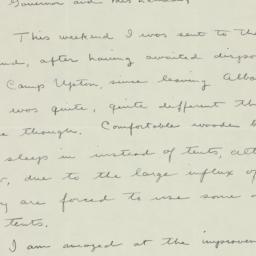 Governor and Mrs. Lehman,
This weekend I was sent to the
nd, after having awaited dispos
Camp Upton, since leaving Alba
was quite, quite different th
e though. Comfortable wooden b
sleep in instead of tents, alt
, due to the large influx of
y are forced to use some o
tents.
I am amazed at the improvem